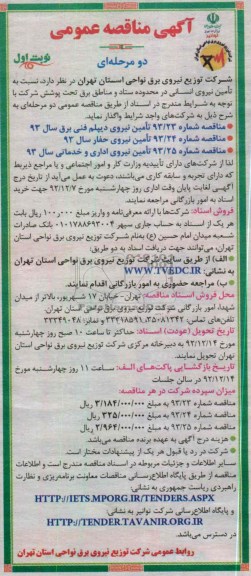 آگهی مناقصه عمومی
دو مرحله‌ای
نوبت اول
شرکت توزیع نیروی برق نواحی استان تهران در نظر دارد، نسبت به
تأمین نیروی انسانی در محدوده ستاد و مناطق برق تحت پوشش شرکت با
توجه به شرایط مندرج در اسناد از طریق مناقصه عمومی دو مرحله‌ای به
شرح ذیل به شرکت‌های واجد شرایط واگذار نماید.
• مناقصه شماره ۹۳/۲۳ تأمین نیروی دیپلم فنی برق سال ۹۳
• مناقصه شماره ۹۳/۲۴ تأمین نیروی حفار سال ۹۳
• مناقصه شماره ۹۳/۲۵ تأمین نیروی اداری و خدماتی سال ۹۳
لذا از شرکت‌های دارای تأییدیه وزارت کار و امور اجتماعی و یا مراجع ذیربط
که دارای تجربه و سابقه کاری می‌باشند، دعوت به عمل می‌آید از تاریخ درج
آگهی لغایت پایان وقت اداری روز چهارشنبه مورخ ۹۲/۱۲/۷ جهت خرید
اسناد به امور بازرگانی مراجعه نمایند.
فروش اسناد: شرکت‌ها با ارائه معرفی‌نامه و واریز مبلغ ۱۰۰٫۰۰۰ ریال بابت
هر یک از اسناد به حساب جاری سپهر ۰۱۰۱۷۸۸۶۹۳۰۰۴ بانک صادرات
شعبه میدان امام حسین (ع) بنام شرکت توزیع نیروی برق نواحی استان
تهران، می‌توانند جهت دریافت اسناد به دو طریق:
• الف) از طریق سایت شرکت توزیع نیروی برق نواحی استان تهران
به نشانی: WWW.TVEDC.IR
• ب) مراجعه حضوری به امور بازرگانی اقدام نمایند.
محل فروش اسناد مناقصه: تهران- خیابان ۱۷ شهریور، بالاتر از میدان
شهدا، امور بازرگانی شرکت توزیع نیروی برق نواحی استان تهران.
تاریخ تحویل (عودت) اسناد: حداکثر تا ساعت ۱۰ صبح روز چهارشنبه
مورخ ۹۲/۱۲/۱۴ به دبیرخانه مرکزی شرکت توزیع نیروی برق نواحی استان
تهران تحویل نمایند.
تاریخ بازگشایی پاکت‌های الف: ساعت ۱۱ روز چهارشنبه مورخ
۹۲/۱۲/۱۴ در سالن جلسات
میزان سپرده شرکت در هر مناقصه:
• مناقصه شماره ۹۳/۲۳ به مبلغ ۳/۱۸۴/۰۰۰/۰۰۰ ریال
• مناقصه شماره ۹۳/۲۴ به مبلغ ۳۲۵/۰۰۰/۰۰۰ ریال
• مناقصه شماره ۹۳/۲۵ به مبلغ ۲/۹۶۴/۰۰۰/۰۰۰ ریال
• هزینه درج آگهی به عهده برنده مناقصه می‌باشد.
• شرکت در رد یا قبول هر یک از پیشنهادات مختار است.
سایر اطلاعات و جزئیات مربوطه در اسناد مناقصه مندرج است و اطلاعات
مناقصه از طریق پایگاه اطلاع‌رسانی مناقصات معاونت برنامه‌ریزی و نظارت
راهبردی ریاست جمهوری به نشانی:
HTTP://IETS.MPORG.IR/TENDERS.ASPX
و پایگاه اطلاع‌رسانی شرکت توانیر به نشانی:
HTTP://TENDER.TAVANIR.ORG.IR
در دسترس می‌باشد.
روابط عمومی شرکت توزیع نیروی برق نواحی استان تهران